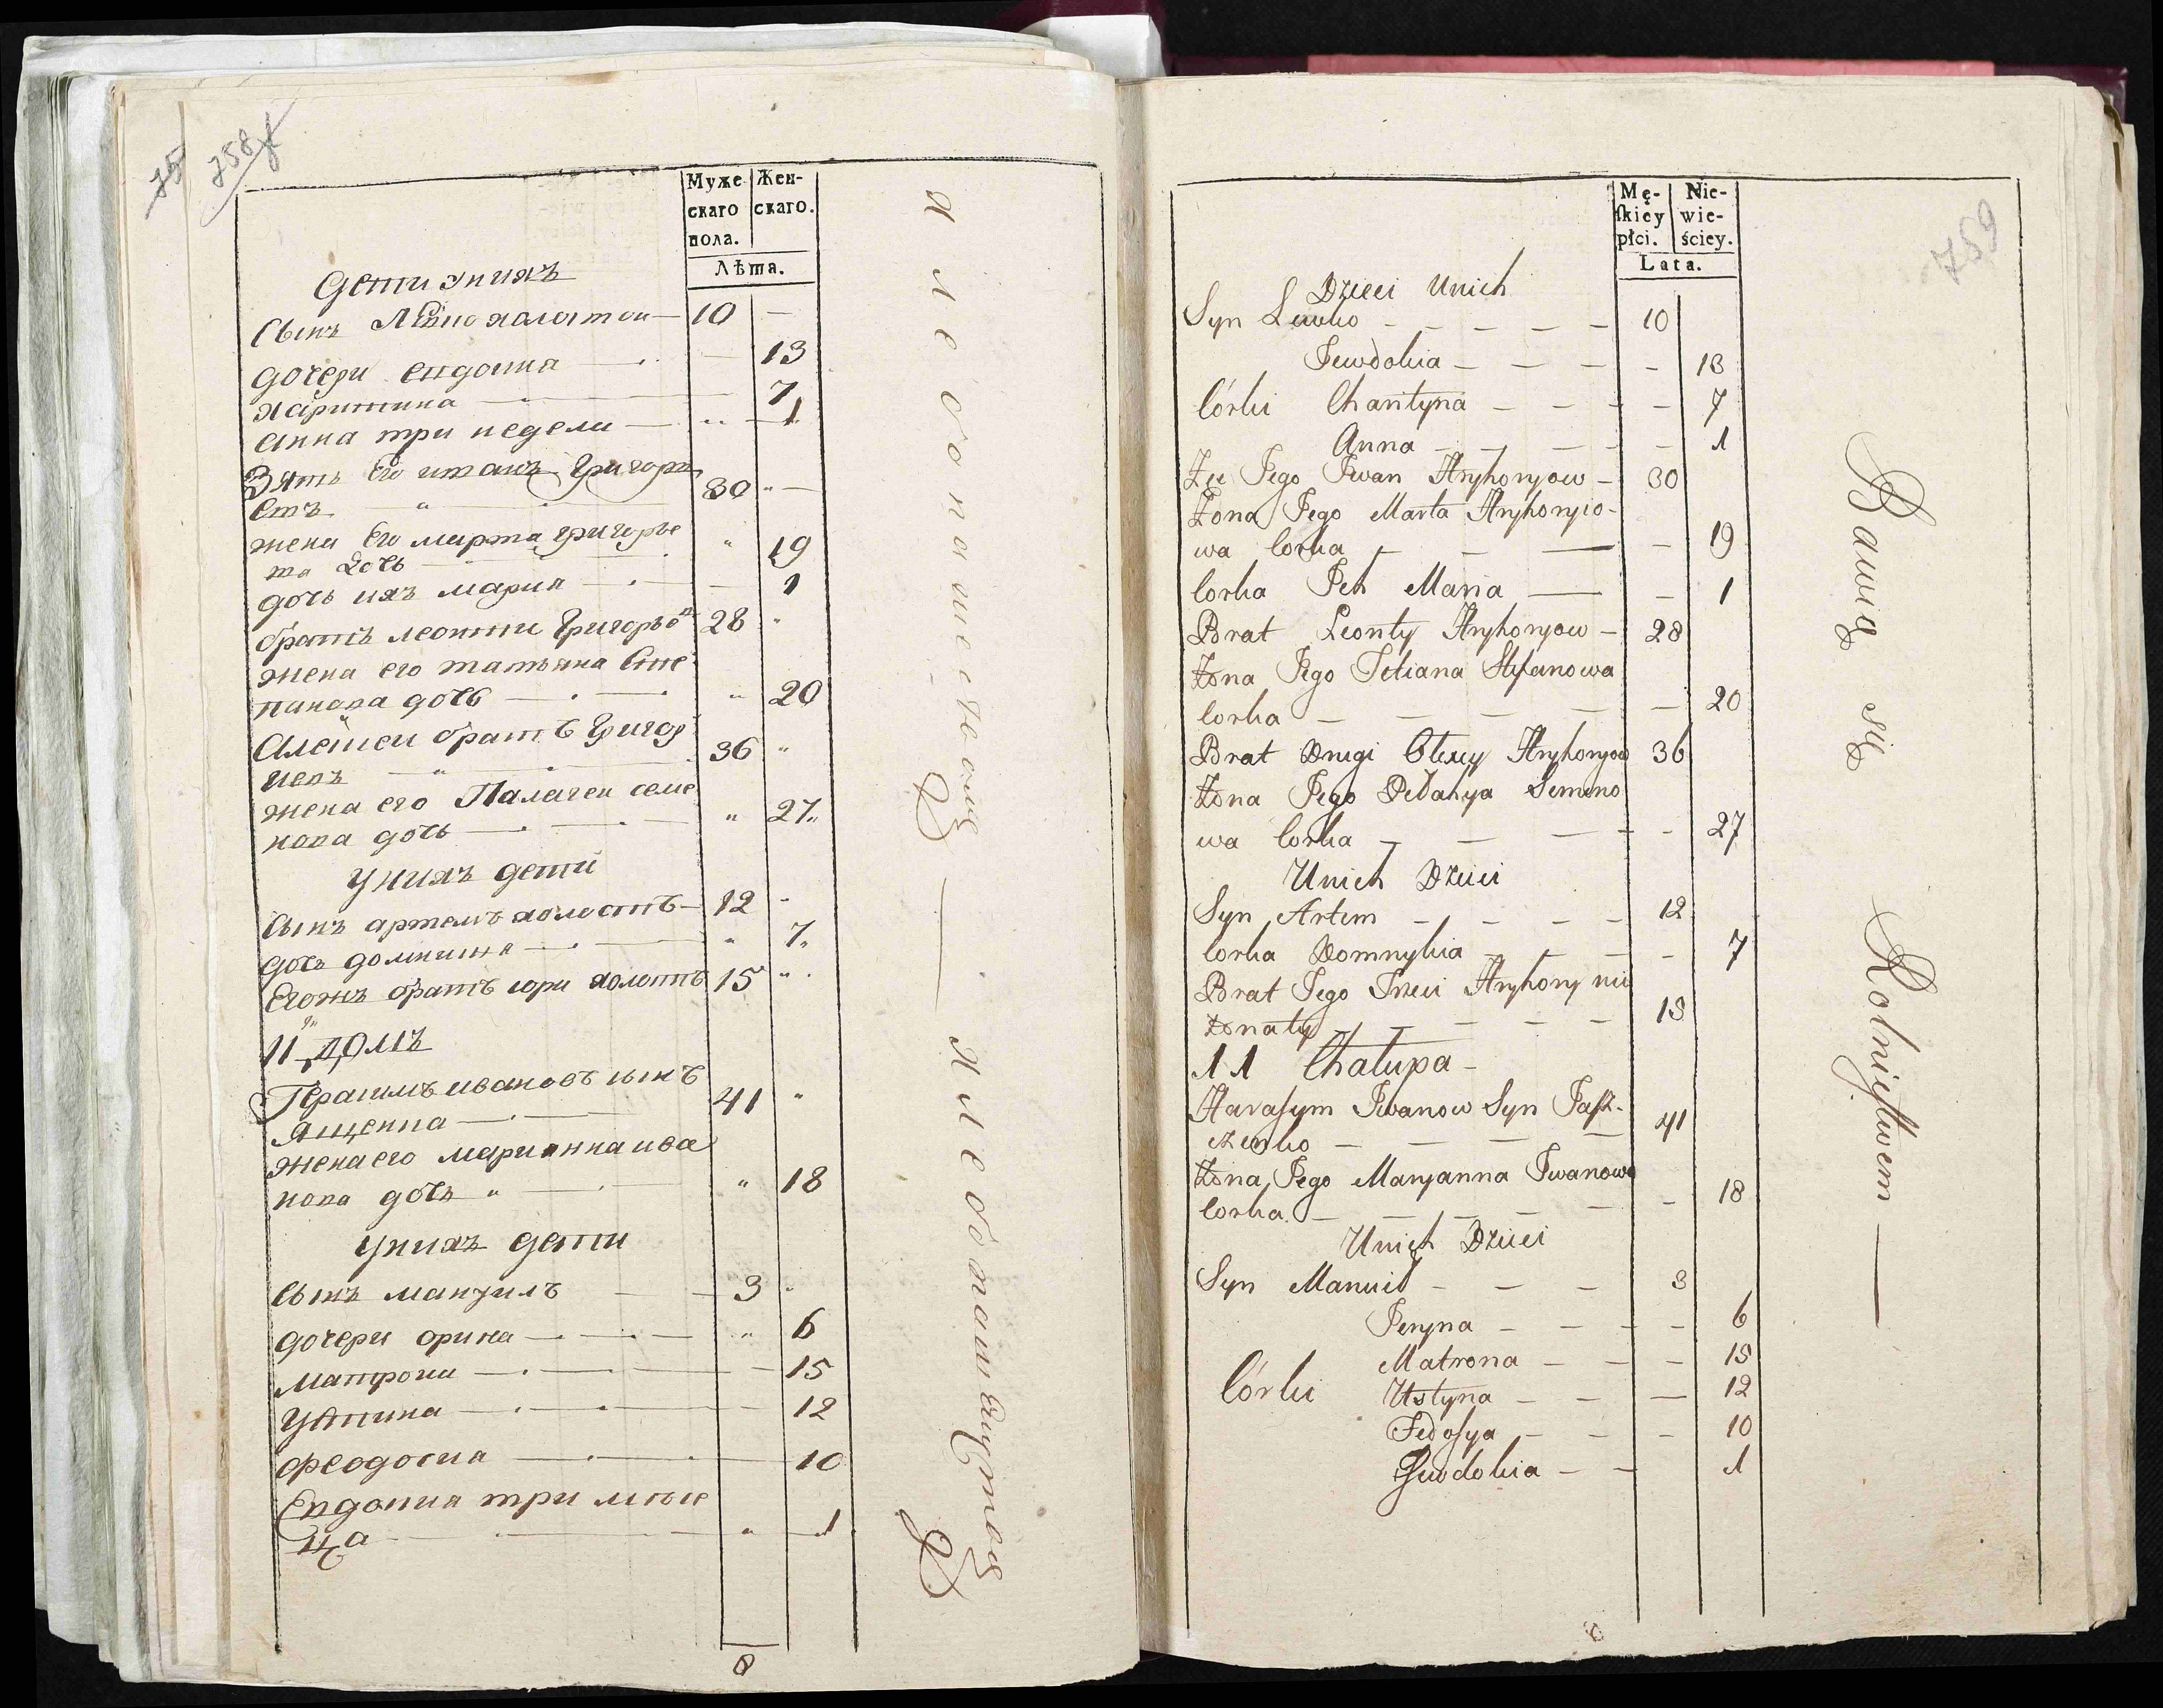 75 758
Муже
скаго
пола.
Жен-
скаго.
Лѣта.
Дети у нихъ
Сынъ Левко холостои — 10 —
дочери Евдокиа — 13
Харитина — 7
Анна три недели — 1
Зять Его иванъ Григорь
евъ 30
жена Его марта григорье
ва дочь — 19
дочь ихъ мариа — 1
братъ леонти Григорьев 28
жена его татьяна Сте
панова дочь — 20
Алексеи братъ Григор
иевъ 36
жена его Палагеи семе
нова дочь — 27
У нихъ дети
Сынъ артемъ холостъ — 12
дочь домникиа — 7
Егожъ братъ юри холостъ 15
11й домъ
Герасимъ ивановъ сынъ
Ященка — 41
Жена его марианна ива
нова дочь — 18
У нихъ дети
Сынъ мануилъ — 3
дочери орина — 6
матрона — 15
Устина — 12
феодосиа — 10
Евдокиа три меся
ца — 1
хлебопашествомъ — хлебопашествомъ
8
759
Mę-
skiey
płci.
Nie-
wie-
ściey.
Lata.
Dzieci Unich
Syn Lewko — 10
Jewdokia — 13
Córki Charityna — 7
Anna — 1
Zęć Jego Iwan Hryhoryow — 30
Żona Jego Marta Hryhoryio-
wa Corka — 19
Corka Ich Maria — 1
Brat Leonty Hryhoryow — 28
Żona Jego Tetiana Stefanowa
Corka — 20
Brat Drugi Olexy Hryhoryow 36
Żona Jego Pelahya Semeno
wa Corka — 27
Unich Dzieci
Syn Artem — 12
Corka Domnykia — 7
Brat Jego Trzeci Hryhory nie
żonaty — 15
11 Chałupa —
Harasym Iwanow Syn Jasz-
czenko — 41
Żona Jego Maryanna Iwanowa
Corka — 18
Unich Dzieci
Syn Manuił — 3
Jeryna — 6
Matrona — 15
Córki Ustyna — 12
Fedosya — 10
Jewdokia — 1
Bawią się Rolnictwem —